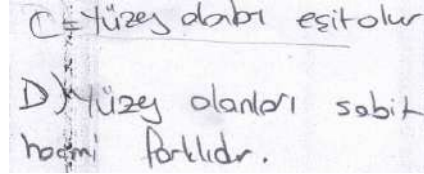 C = Yüzey alanları eşit olur
D) Yüzey alanları sabit
hacmi farklıdır.